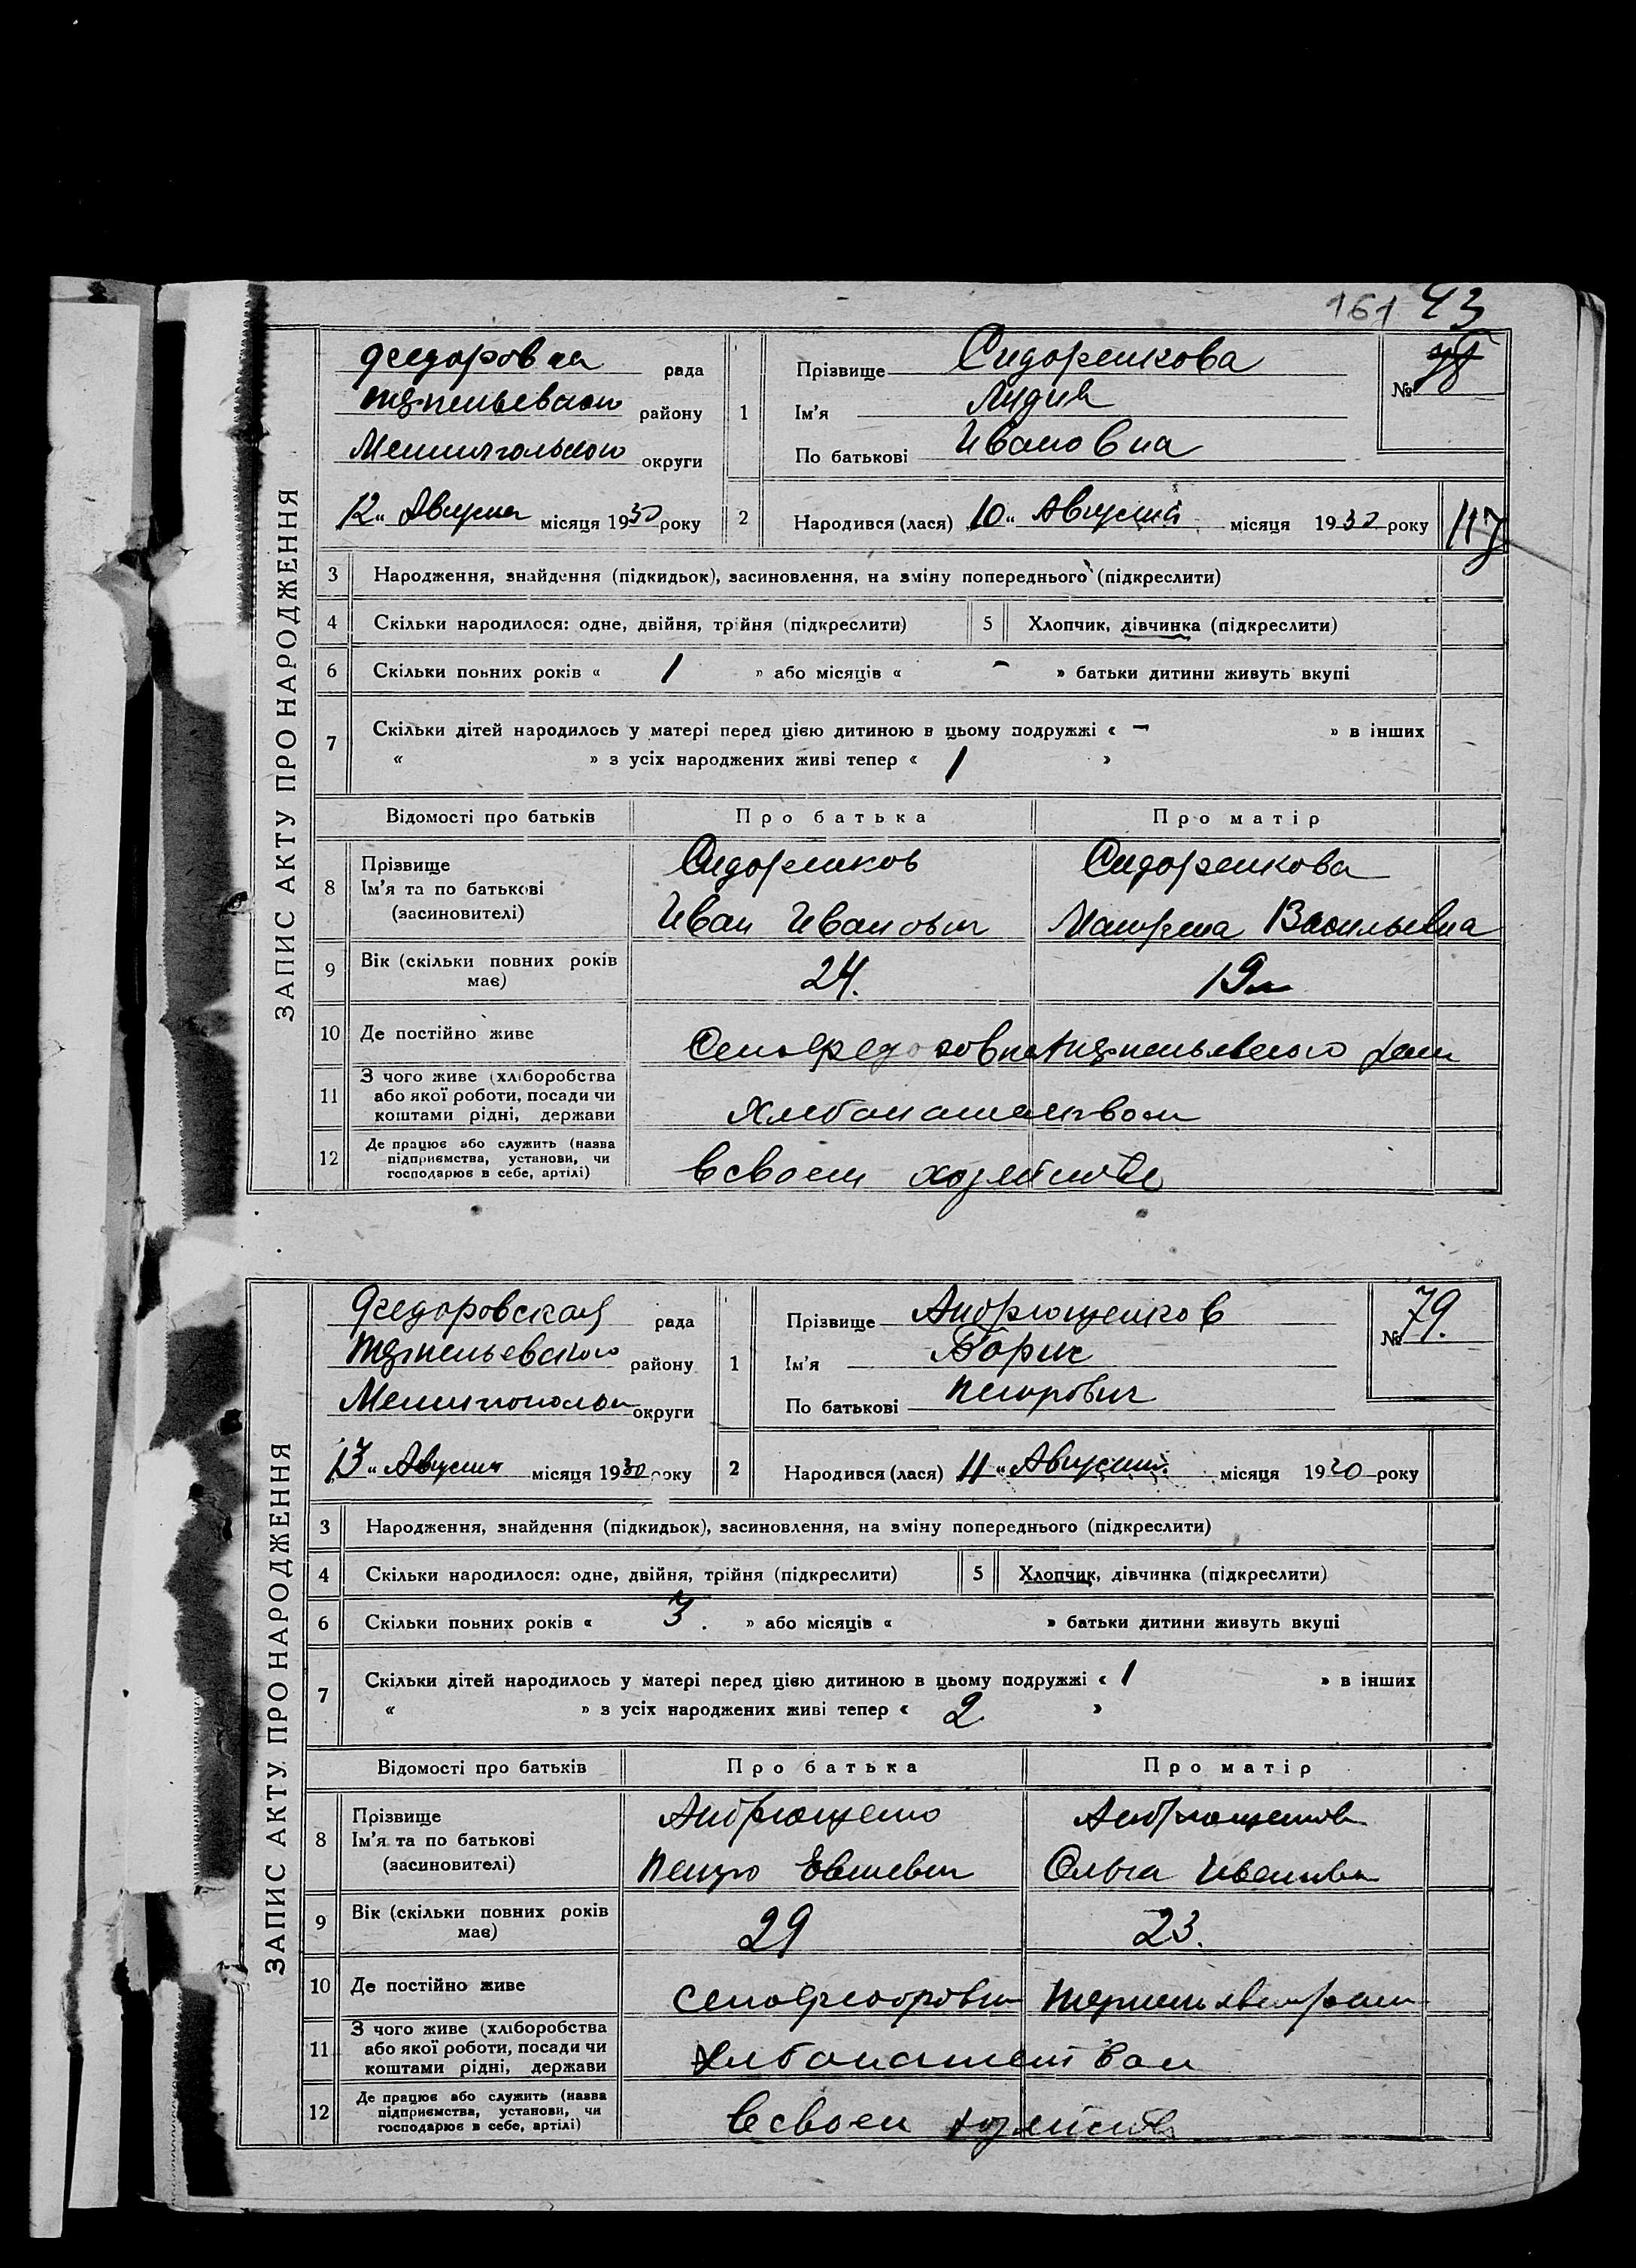 161 43
ЗАПИС АКТУ ПРО НАРОДЖЕННЯ
рада
району
округи
12 „ Августа місяця 1930 року
1 Прізвище Сидоренкова
Ім'я Лидия
По батькові Ивановна
№ 78
2 Народився (лася) 10 „ Августа місяця 1930 року
117
3 Народження, знайдення (підкидьок), засиновлення, на зміну попереднього (підкреслити)
4 Скільки народилося: одне, двійня, трійня (підкреслити) 5 Хлопчик, дівчинка (підкреслити)
6 Скільки повних років « 1 » або місяців « - » батьки дитини живуть вкупі
7 Скільки дітей народилось у матері перед цією дитиною в цьому подружжі « - » в інших
« » з усіх народжених живі тепер « 1 »
Відомості про батьків Про батька Про матір
8 Прізвище
Ім'я та по батькові
(засиновителі)
Сидоренков Сидоренкова
Иван Иванович Васильевна
9 Вік (скільки повних років має) 24. 19 л
10 Де постійно живе
11 З чого живе (хліборобства або якої роботи, посади чи коштами рідні, держави
Хлебопашеством
12 Де працює або служить (назва підприємства, установи, чи господарює в себе, артілі)
в своем хозяйстве
ЗАПИС АКТУ ПРО НАРОДЖЕННЯ
Федоровская рада
району
округи
13 „ Августа місяця 1930 року
1 Прізвище Андрющенков
Ім'я Борис
По батькові Петрович
№ 79.
2 Народився (лася) 11 „ Августа місяця 1930 року
3 Народження, знайдення (підкидьок), засиновлення, на зміну попереднього (підкреслити)
4 Скільки народилося: одне, двійня, трійня (підкреслити) 5 Хлопчик, дівчинка (підкреслити)
6 Скільки повних років « 3. » або місяців « » батьки дитини живуть вкупі
7 Скільки дітей народилось у матері перед цією дитиною в цьому подружжі « 1 » в інших
« » з усіх народжених живі тепер « 2 »
Відомості про батьків Про батька Про матір
8 Прізвище
Ім'я та по батькові
(засиновителі)
Ольга Ивановна
9 Вік (скільки повних років має) 29 23.
10 Де постійно живе
11 З чого живе (хліборобства або якої роботи, посади чи коштами рідні, держави
Хлебопашеством
12 Де працює або служить (назва підприємства, установи, чи господарює в себе, артілі)
в своем хозяйстве